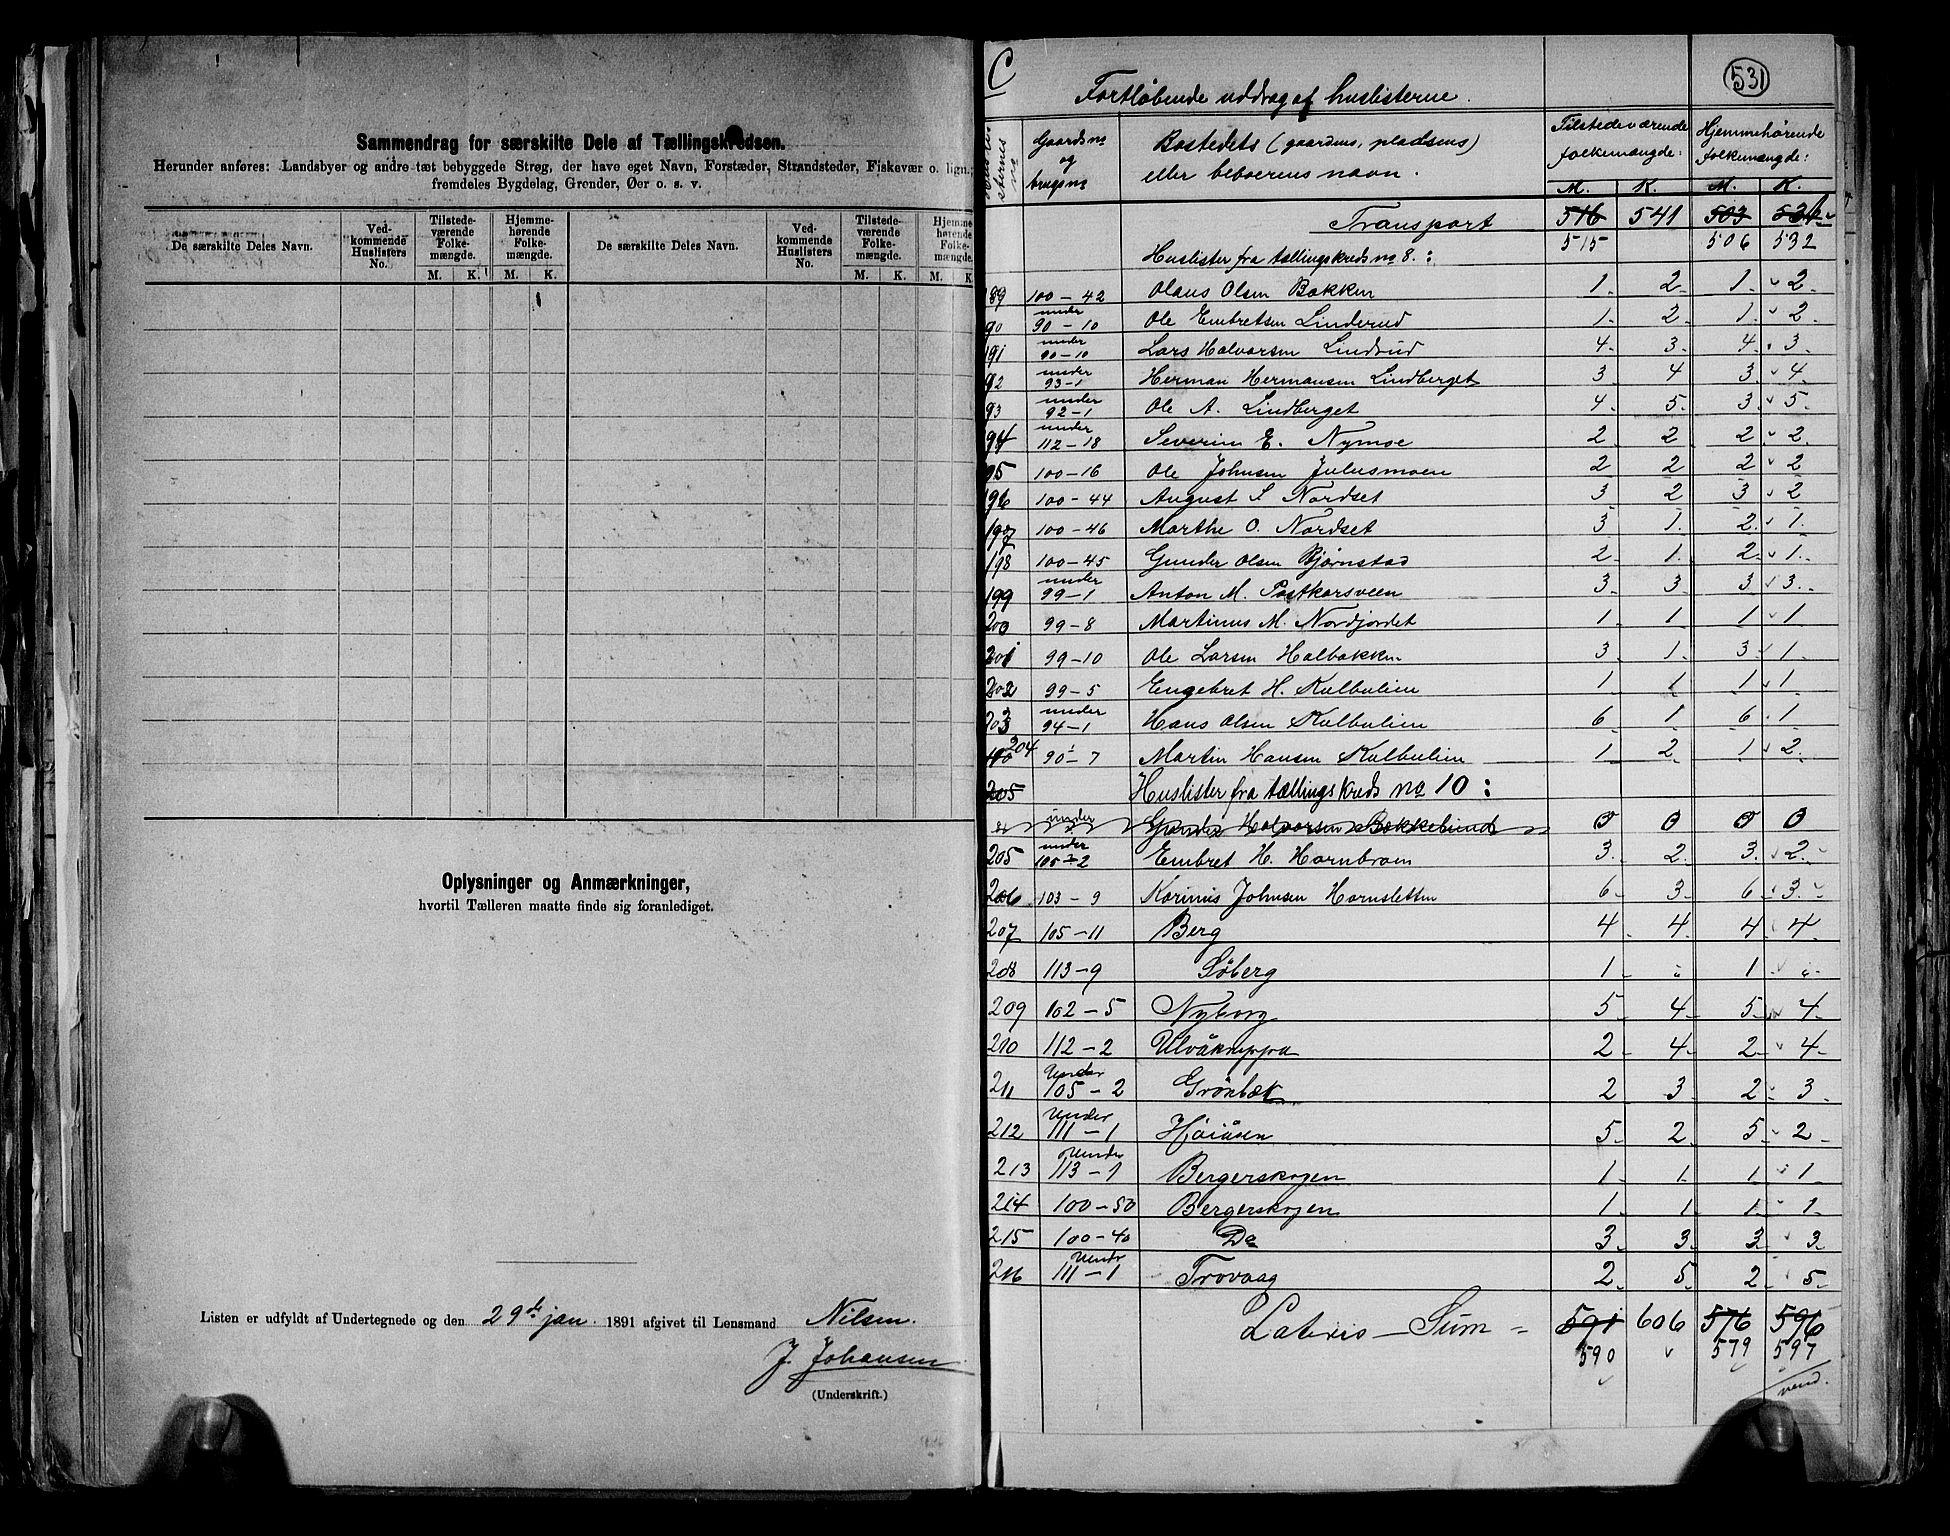 Sammendrag for særskilte Dele af Tællingskredsen.
Herunder anføres: Landsbyer og andre tæt bebyggede Strøg, der have eget Navn, Forstæder, Strandsteder, Fiskevær o. lign.;
fremdeles Bygdelag, Grender, Øer o. s. v.
De særskilte Deles Navn. Ved-kommende Huslisters No. Tilstede-værende Folke-mængde. Hjemme-hørende Folke-mængde. De særskilte Deles Navn. Ved-kommende Huslisters No. Tilstede-værende Folke-mængde. Hjemme-hørende Folke-mængde.
M. K. M. K. M. K. M. K.
Oplysninger og Anmærkninger,
hvortil Tælleren maatte finde sig foranlediget.
Listen er udfyldt af Undertegnede og den 29de jan 1891 afgivet til Lensmand Nilsen.
J. Johansen
(Underskrift.)
C 531
Fortløbende uddrag af huslisterne.
Huslisternes no Gaards no og brugs no Bostedets (gaardens, pladsens) eller beboerens navn. Tilstedeværende folkemængde: Hjemmehørende folkemængde:
M. K. M. K.
Transport 516 541 503 531
515 506 532
Huslister fra tællingskreds no 8. :
189 100-42 Olaus Olsen Bakken 1 2 1 2
90 under 90-10 Ole Embretsen Linderud 1 2 1 2
191 under 90-10 Lars Halvorsen Lindrud 4 3 4 3
92 under 93-1 Herman Hermansen Lindberget 3 4 3 4
93 under 92-1 Ole A. Lindberget 4 5 3 5
194 under 112-18 Severin E. Nymoe 2 2 2 2
95 100-16 Ole Johnsen Julusmoen 2 2 2 2
196 100-44 August S Nordset 3 2 3 2
197 100-46 Marthe O. Nordset 3 1 2 1
198 100-45 Gunder Olsen Bjørnstad 2 1 2 1
199 under 99-1 Anton M. Postkorsveen 3 3 3 3
200 99-8 Martinus M. Nordjordet 1 1 1 1
201 99-10 Ole Larsen Halbakken 3 1 3 1
202 99-5 Engebret H. Kulbulien 1 1 1 1
203 under 94-1 Hans Olsen Kulbulien 6 1 6 1
204 90-7 Martin Hansen Kulbulien 1 2 1 2
205 Huslister fra tællingskreds no 10 :
under Gunder Halvorsen Bækkelund 0 0 0 0
205 under 105-2 Embret H. Hornbroen 3 2 3 2
206 103-9 Karinus Johnsen Hornsletten 6 3 6 3
207 105-11 Berg 4 4 4 4
208 113-9 Søberg 1 " 1 "
209 102-5 Nyborg 5 4 5 4
210 112-2 Ulvåknappa 2 4 2 4
211 Under 105-2 Grönbæk 2 3 2 3
212 Under 111-1 Höiåsen 5 2 5 2
213 Under 113-1 Bergerskogen 1 1 1 1
214 100-50 Bergerskogen 1 1 1 1
215 100-40 Do 3 3 3 3
216 Under 111-1 Trovaag 2 5 2 5
Lateris - Sum = 591 606 576 596
590 579 597
vend.